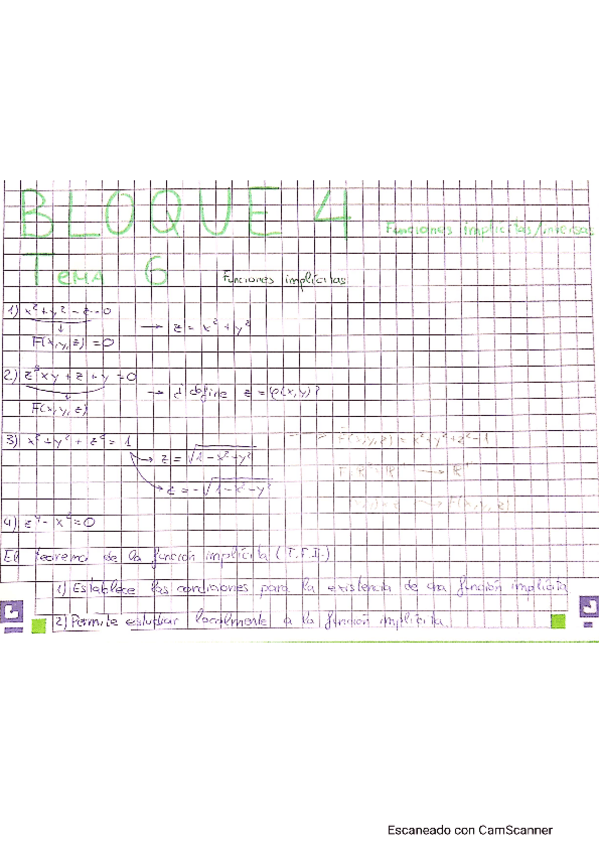 BLOQUE 4 Funciones implícitas/inversas
TEMA 6 Funciones implícitas
1) x² + y² - z = 0 → z = x² + y²
↓
F(x,y,z) = 0
2) xy + z + y = 0 → ¿define z = φ(x,y)?
↓
F(x,y,z)
3) x² + y² + z² = 1 → F(x,y,z) = x² + y² + z² - 1
→ z = √1-x²+y²
→ z = -√1-x²-y² → F(x,y,z)
4) z⁴ - x⁶ = 0
El teorema de la función implícita (T.F.I.)
1) Establece las condiciones para la existencia de una función implícita
2) Permite estudiar localmente a la función implícita.
Escaneado con CamScanner